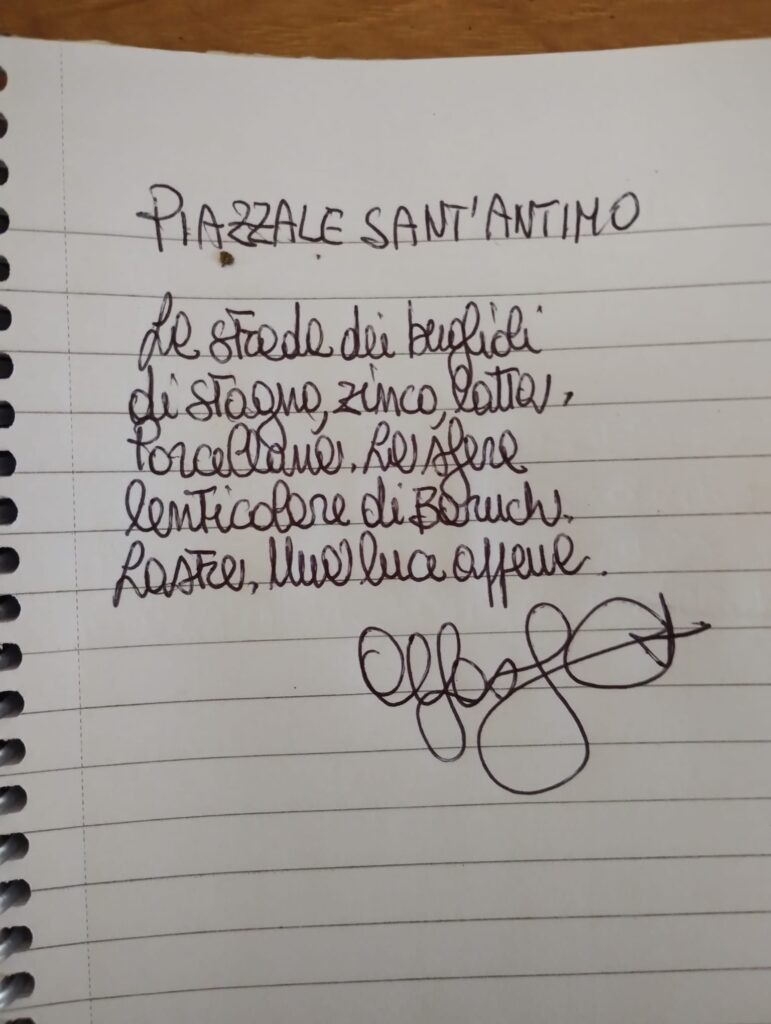 PIAZZALE SANT'ANTIMO
La strada dei buglioli
di stagno, zinco, latta,
porcellana. La sfera
lenticolare di Baruch.
Lastra. Una luce appena.